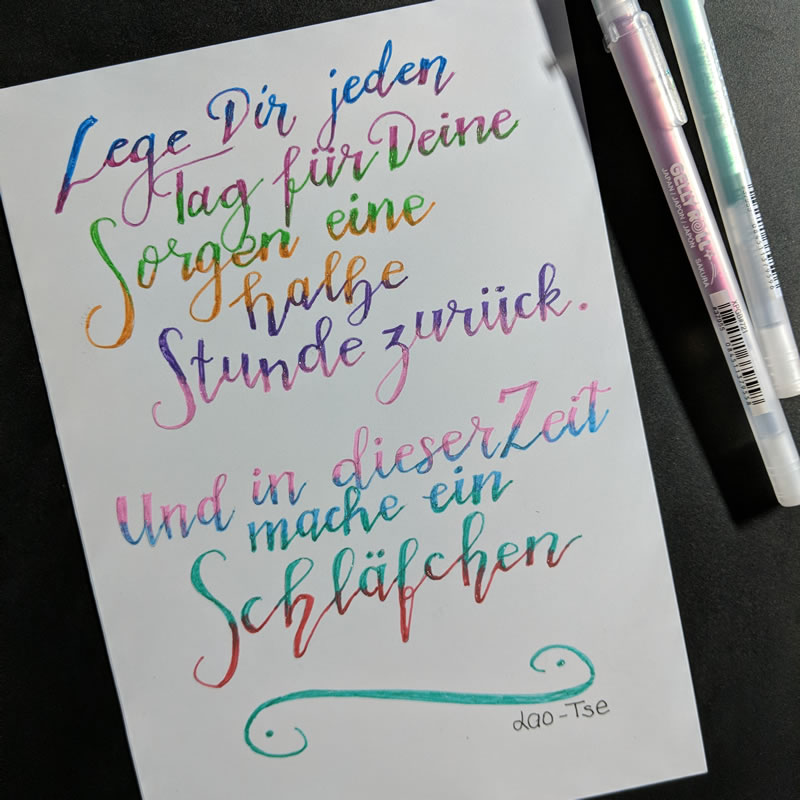 Lege Dir jeden
Tag für Deine
Sorgen eine
halbe
Stunde zurück.
Und in dieser Zeit
mache ein
Schläfchen
Lao-Tse
GELLY ROLL
JAPAN / JAPON / JAPÓN
SAKURA